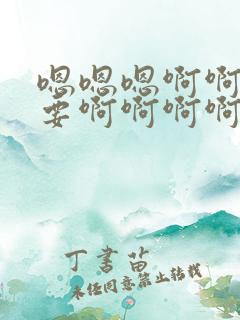 嗯嗯嗯啊啊
要啊啊啊啊
丁书苗
未经同意禁止转载